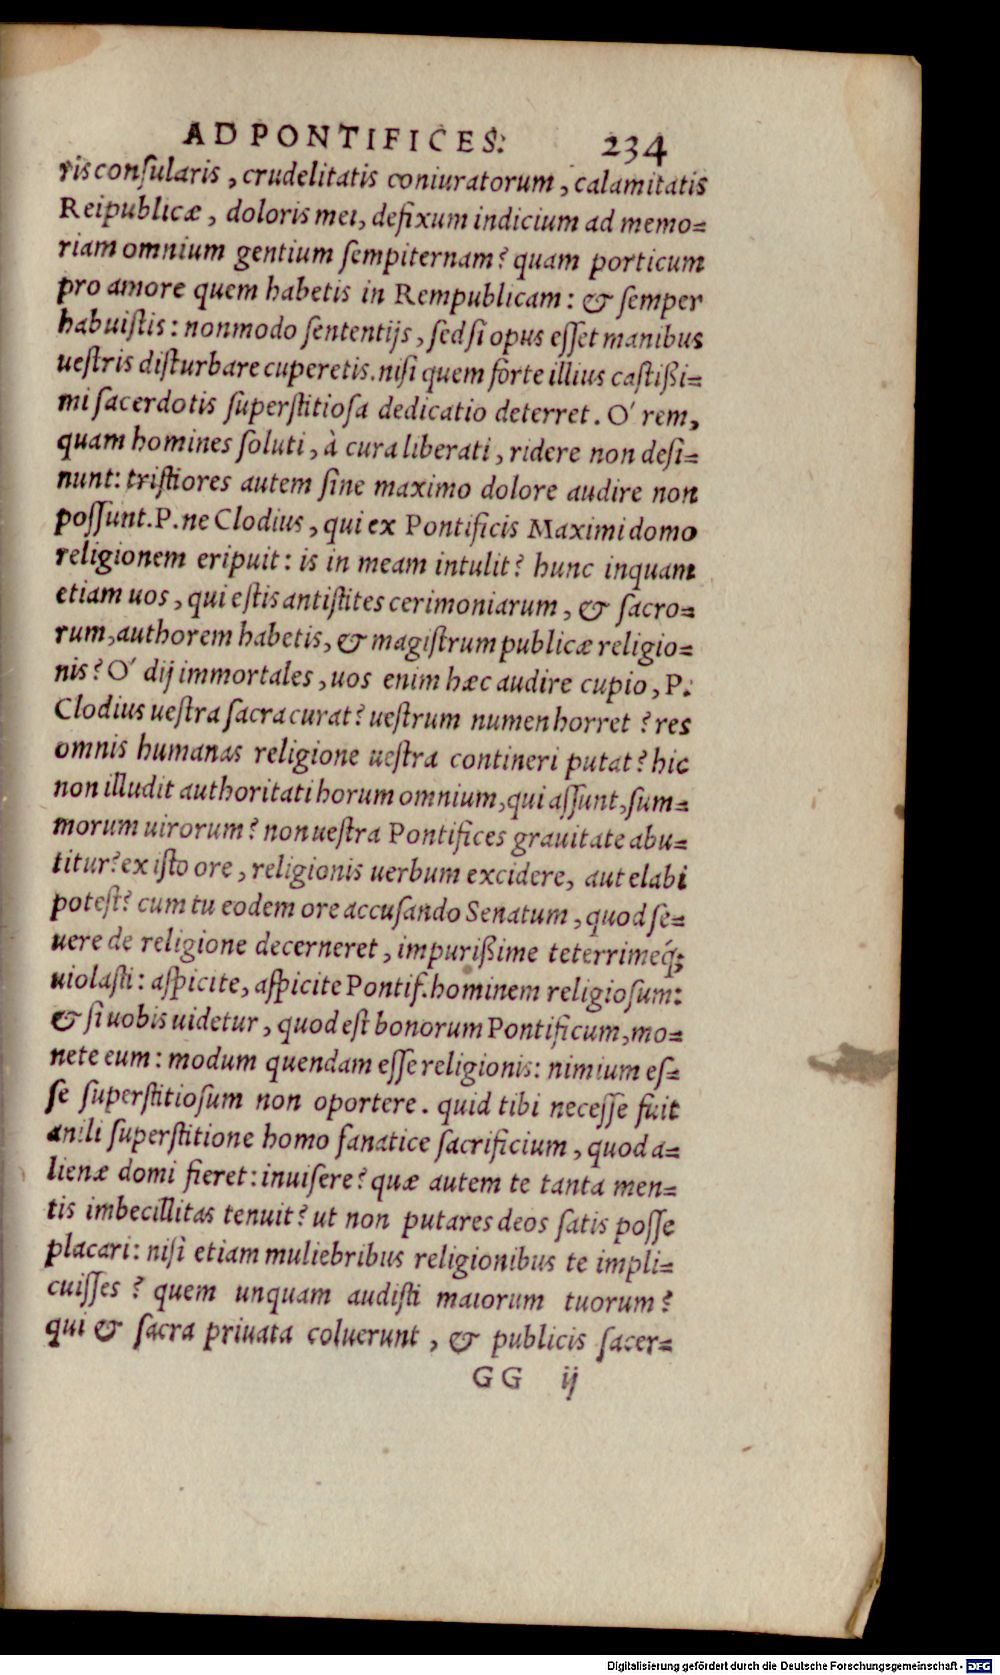 AD PONTIFICES. 234
ris consularis, crudelitatis coniuratorum, calamitatis
Reipublicæ, doloris mei, defixum indicium ad memo=
riam omnium gentium sempiternam? quam porticum
pro amore quem habetis in Rempublicam: & semper
habuistis: nonmodo sententijs, sed si opus esset manibus
uestris disturbare cuperetis. nisi quem forte illius castißi=
mi sacerdotis superstitiosa dedicatio deterret. O' rem,
quam homines soluti, à cura liberati, ridere non desi=
nunt: tristiores autem sine maximo dolore audire non
possunt. P. ne Clodius, qui ex Pontificis Maximi domo
religionem eripuit: is in meam intulit? hunc inquam
etiam uos, qui estis antistites cerimoniarum, & sacro=
rum, authorem habetis, & magistrum publicæ religio=
nis? O' dij immortales, uos enim hæc audire cupio, P.
Clodius uestra sacra curat? uestrum numen horret? res
omnis humanas religione uestra contineri putat? hic
non illudit authoritati horum omnium, qui assunt, sum=
morum uirorum? non uestra Pontifices grauitate abu=
titur? ex isto ore, religionis uerbum excidere, aut elabi
potest? cum tu eodem ore accusando Senatum, quod se=
uere de religione decerneret, impurißime teterrimeq́;
uiolasti: aspicite, aspicite Pontif. hominem religiosum:
& si uobis uidetur, quod est bonorum Pontificum, mo=
nete eum: modum quendam esse religionis: nimium es=
se superstitiosum non oportere. quid tibi necesse fuit
anili superstitione homo fanatice sacrificium, quod a=
lienæ domi fieret: inuisere? quæ autem te tanta men=
tis imbecillitas tenuit? ut non putares deos satis posse
placari: nisi etiam muliebribus religionibus te impli=
cuisses? quem unquam audisti maiorum tuorum?
qui & sacra priuata coluerunt, & publicis sacer=
GG ij
Digitalisierung gefördert durch die Deutsche Forschungsgemeinschaft - DFG